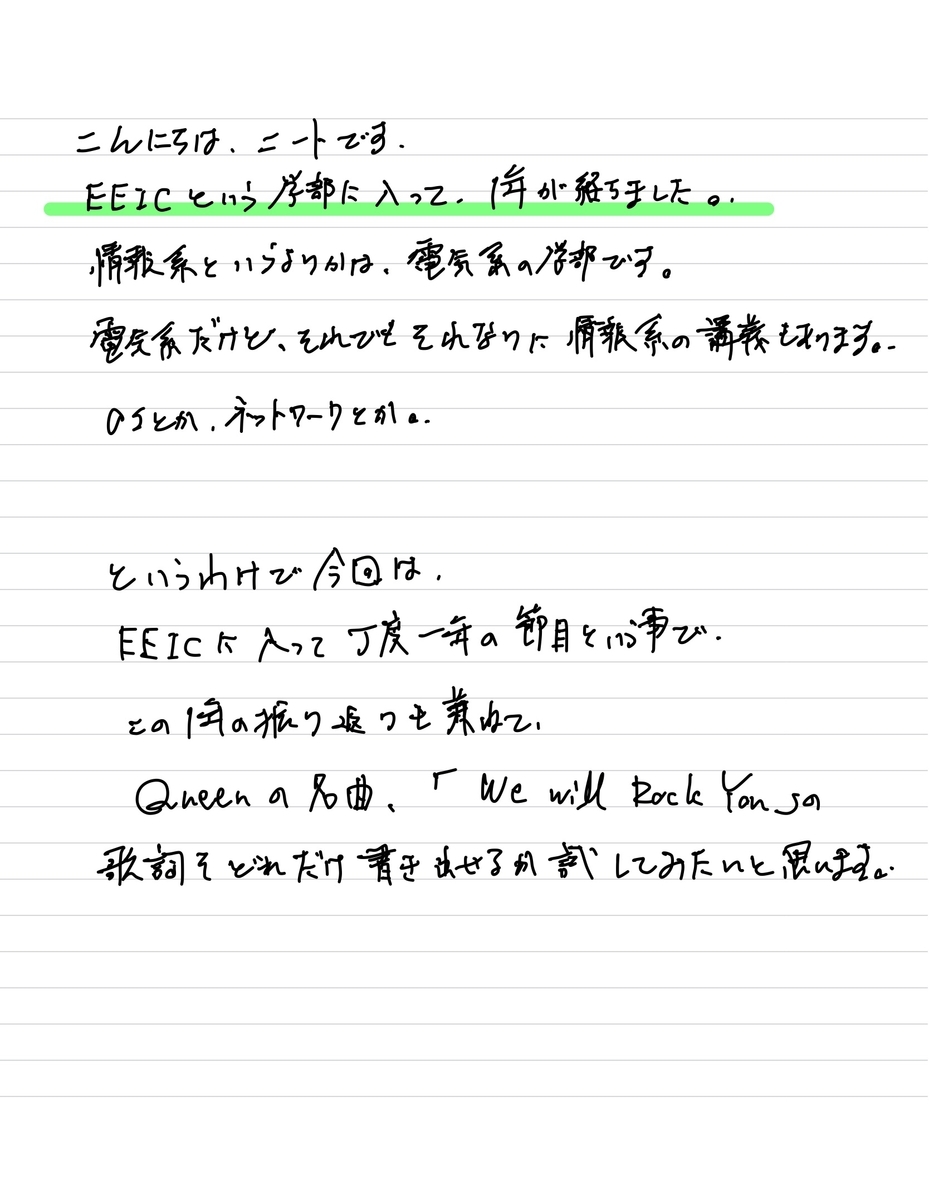 こんにちは、ニートです.
EEICという学部に入って、1年が経ちました。
情報系というよりかは、電気系の学部です。
電気系だけど、それでもそれなりに情報系の講義もあります。
OSとか、ネットワークとか。
というわけで今回は、
EEICに入って丁度一年の節目という事で、
この1年の振り返りも兼ねて、
Queenの名曲、「We will Rock You」の
歌詞をどれだけ書き出せるか試してみたいと思います。